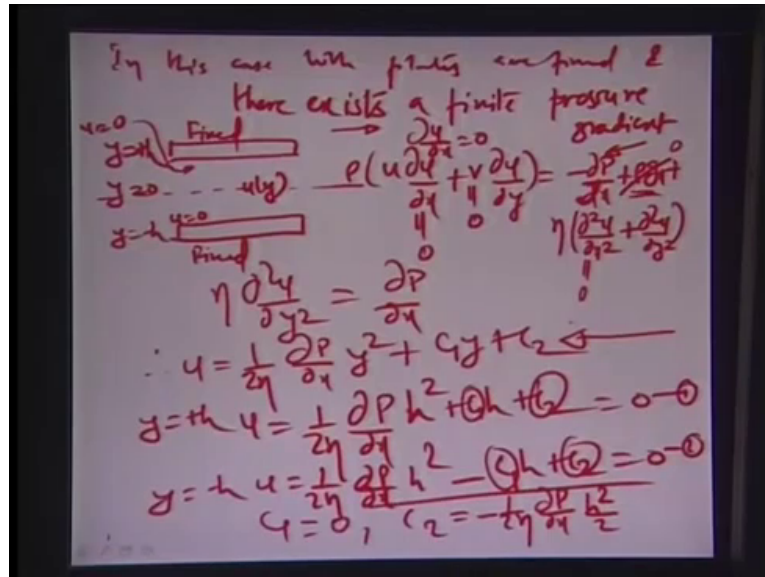 In this case both plates are fixed &
there exists a finite pressure
gradient
u=0 Fixed → ∂u/∂x=0
y=+h
y=0 u(y) ρ(u ∂u/∂x + v ∂u/∂y) = -∂P/∂x + ρgx + 0
y=-h u=0 0 0 η(∂²u/∂x² + ∂²u/∂y²)
Fixed 0
η ∂²u/∂y² = ∂P/∂x
∴ u = 1/2η ∂P/∂x y² + C₁y + C₂ ←
y=+h u = 1/2η ∂P/∂x h² + C₁h + C₂ = 0 -①
y=-h u = 1/2η ∂P/∂x h² - C₁h + C₂ = 0 -②
C₁ = 0, C₂ = -1/2η ∂P/∂x h²/2